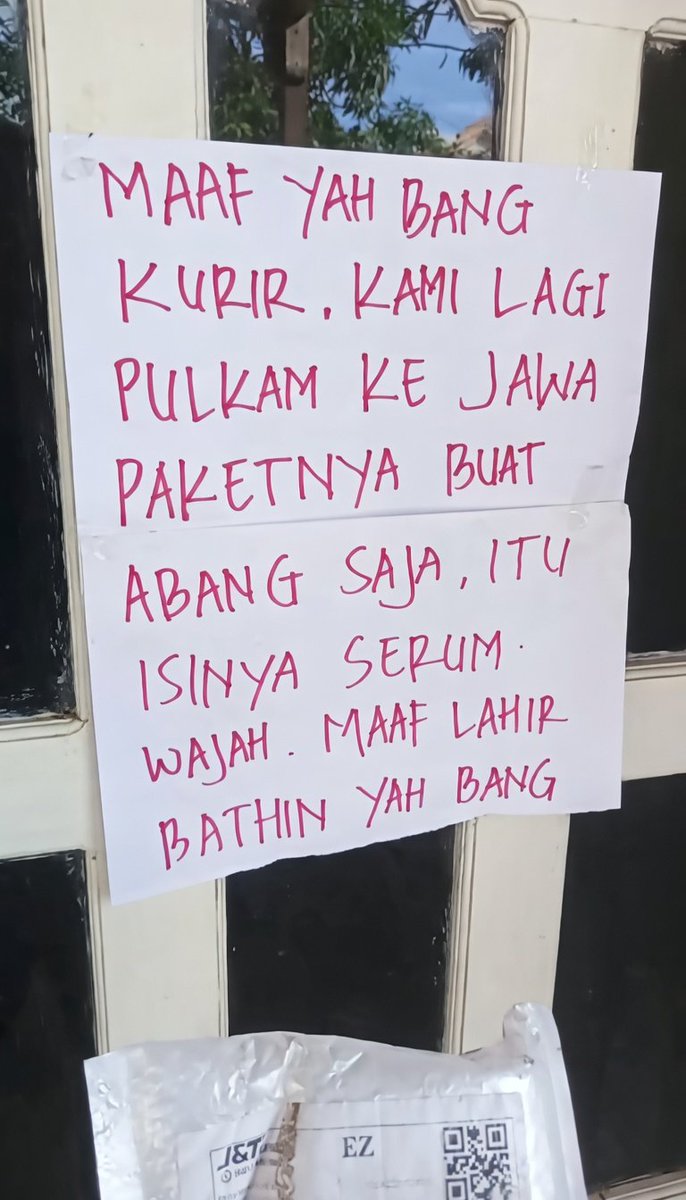 MAAF YAH BANG
KURIR. KAMI LAGI
PULKAM KE JAWA
PAKETNYA BUAT
ABANG SAJA, ITU
ISINYA SERUM.
WAJAH. MAAF LAHIR
BATHIN YAH BANG
J&T
EZ